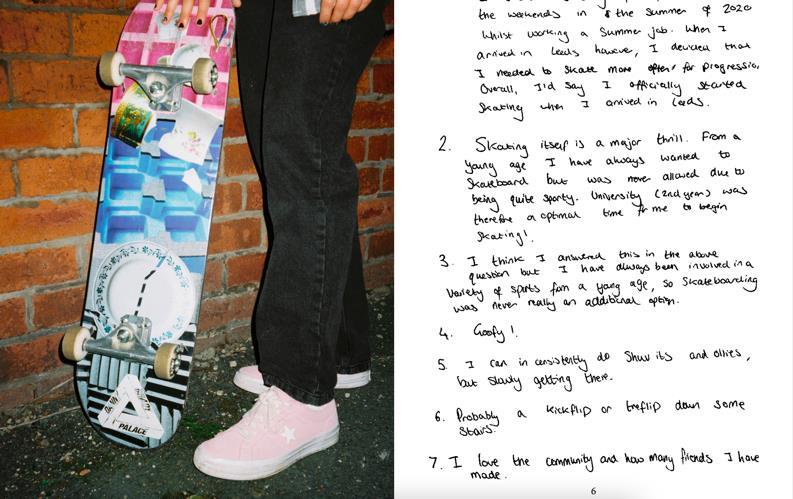 PALACE
the weekends in the summer of 2020
whilst working a summer job. When I
arrived in Leeds however, I decided that
I needed to skate more often for progressio
Overall, I'd say I officially started
skating when I arrived in Leeds.
2. Skating itself is a major thrill. From a
young age I have always wanted to
skateboard but was never allowed due to
being quite sporty. University (2nd year) was
therefore a optimal time for me to begin
skating!
3. I think I answered this in the above
question but I have always been involved in a
variety of sports from a young age, so skateboarding
was never really an additional option.
4. Goofy!
5. I can inconsistently do shuv its and ollies,
but slowly getting there.
6. Probably a kickflip or treflip down some
stairs.
7. I love the community and how many friends I have
made.
6